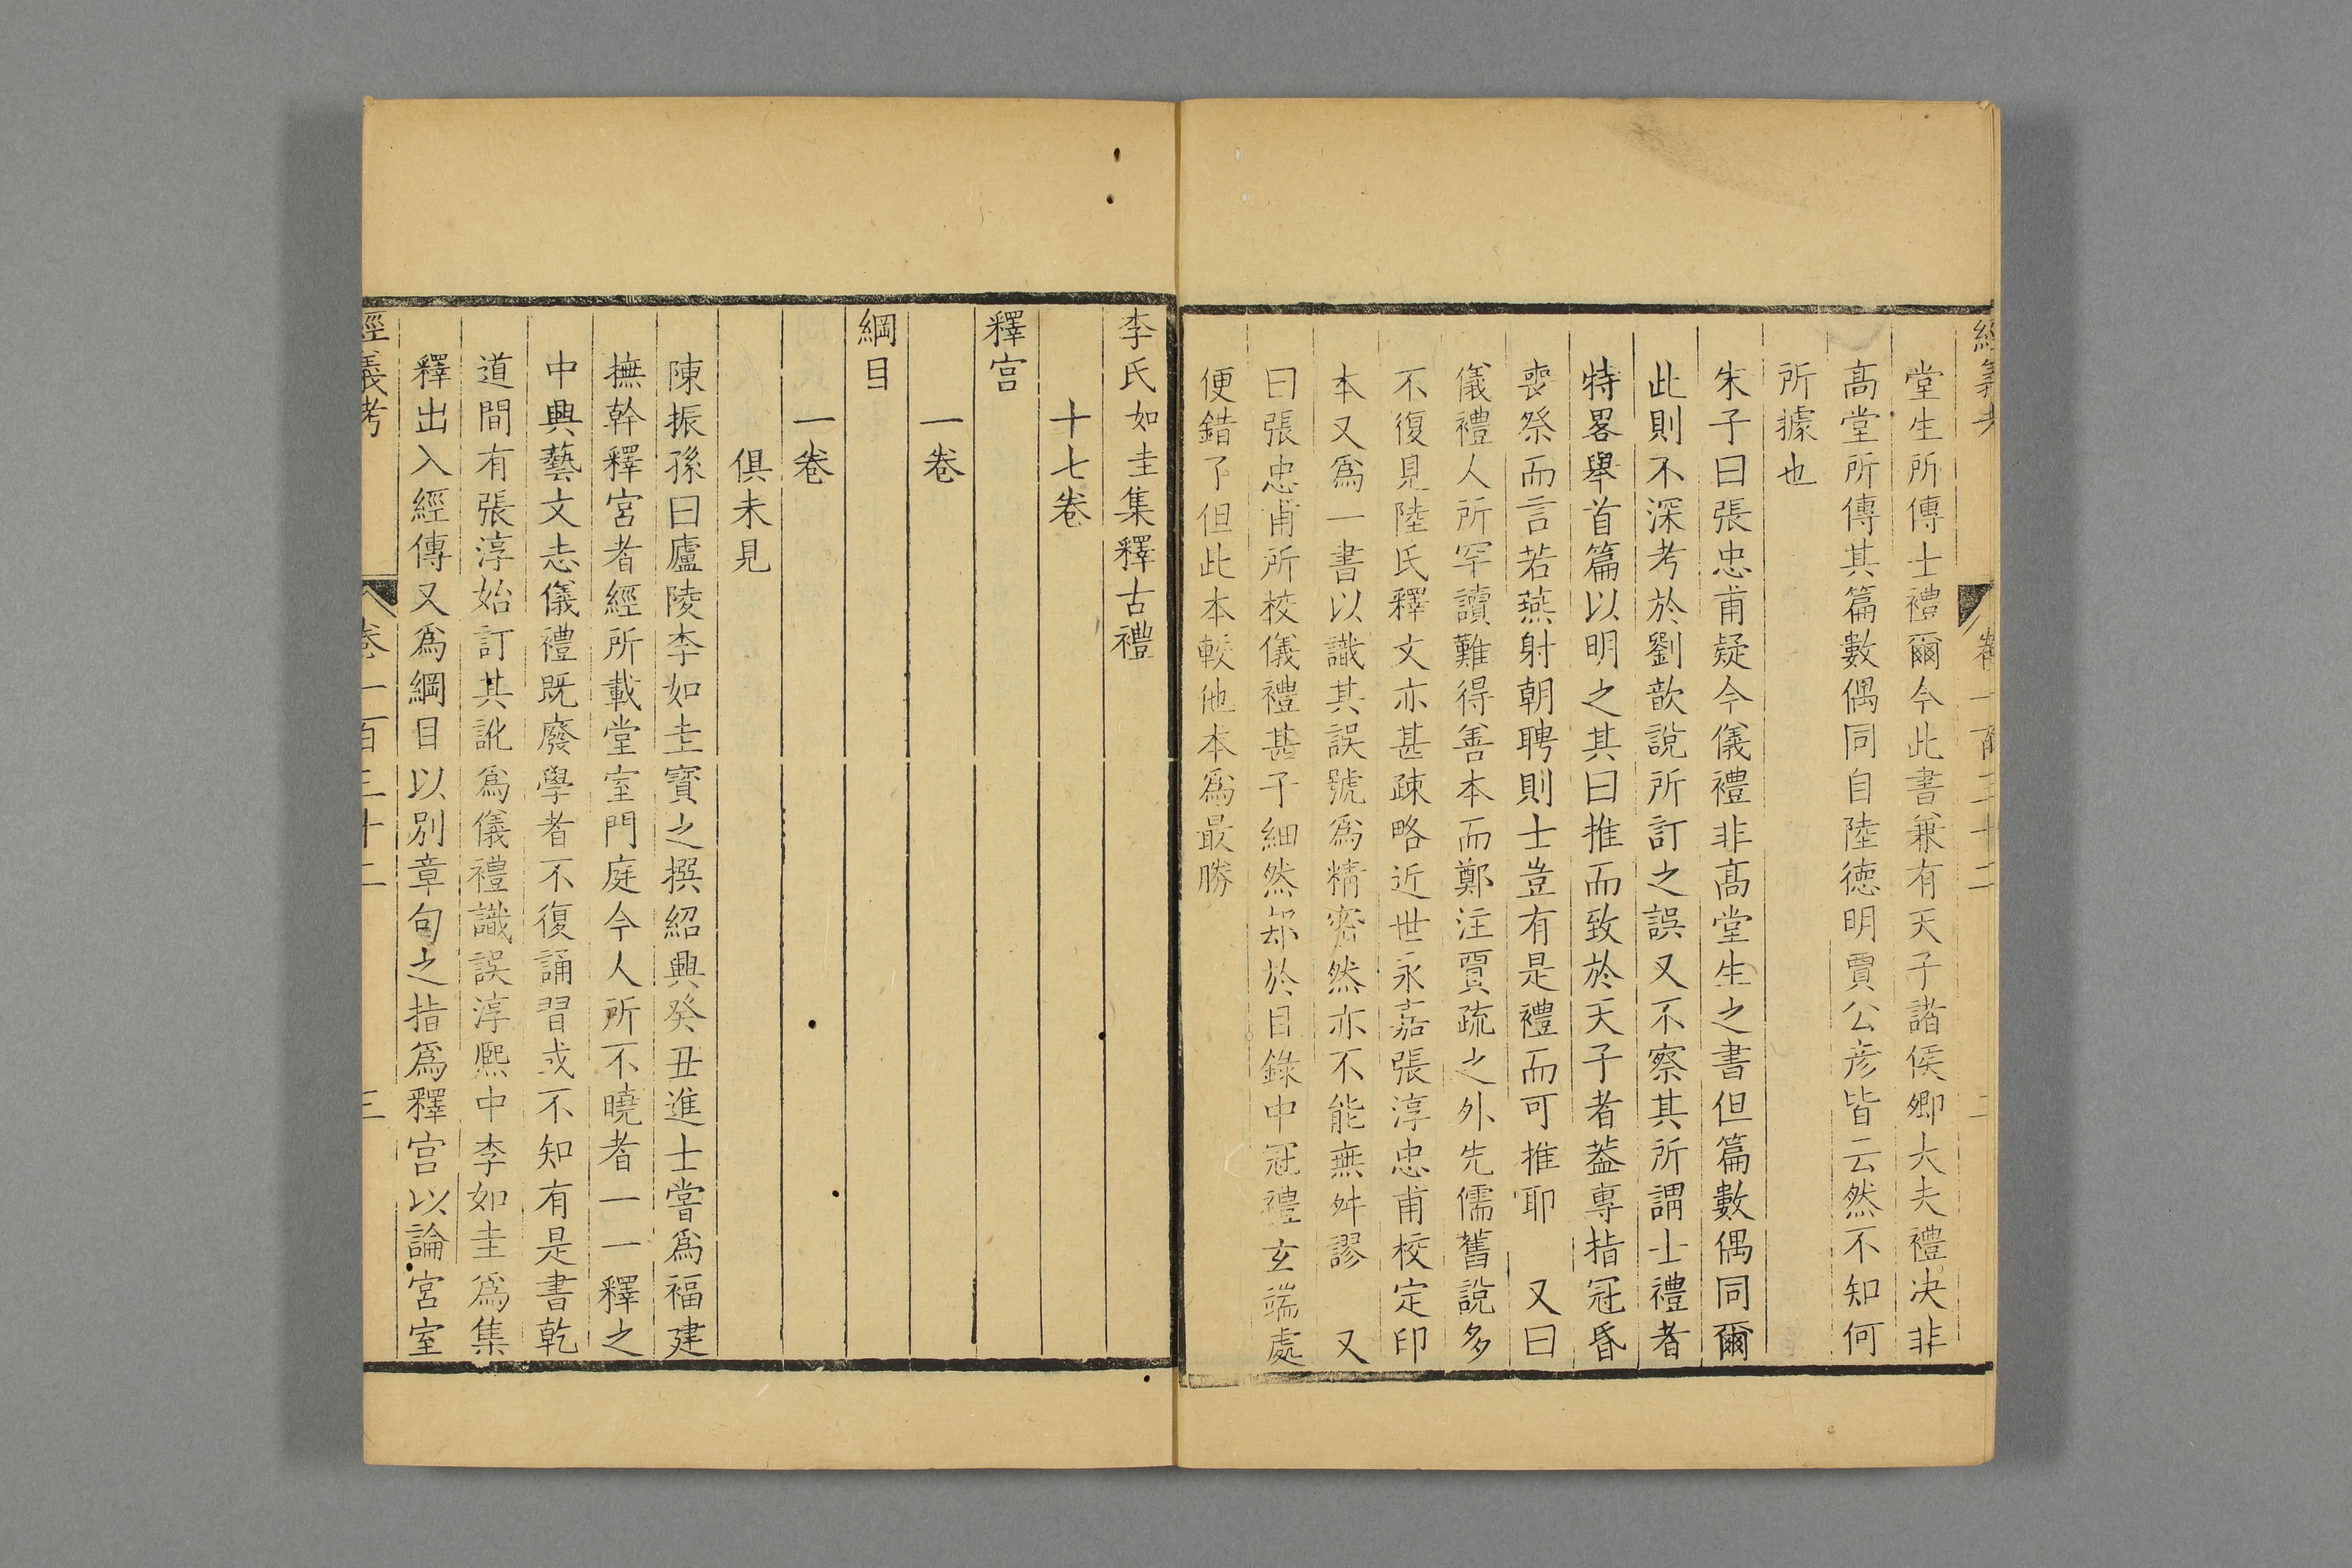 經義考 卷一百三十二 二
堂生所傳士禮爾今此書兼有天子諸侯卿大夫禮决非
高堂所傳其篇數偶同自陸德明賈公彦皆云然不知何
所據也
朱子曰張忠甫疑今儀禮非高堂生之書但篇數偶同爾
此則不深考於劉歆說所訂之誤又不察其所謂士禮者
特畧舉首篇以明之其曰推而致於天子者葢專指冠昏
喪祭而言若燕射朝聘則士豈有是禮而可推耶 又曰
儀禮人所罕讀難得善本而鄭注賈疏之外先儒舊說多
不復見陸氏釋文亦甚疎略近世永嘉張淳忠甫校定印
本又爲一書以識其誤號爲精密然亦不能無舛謬 又
曰張忠甫所校儀禮甚子細然却於目錄中冠禮玄端處
便錯了但此本較他本爲最勝
李氏如圭集釋古禮
十七卷
釋宫
一卷
綱目
一卷
俱未見
陳振孫曰廬陵李如圭寳之撰紹興癸丑進士嘗爲福建
撫幹釋宮者經所載堂室門庭今人所不曉者一一釋之
中興藝文志儀禮既廢學者不復誦習或不知有是書乾
道間有張淳始訂其訛爲儀禮識誤淳熙中李如圭爲集
釋出入經傳又爲綱目以别章句之指爲釋宫以論宮室
經義考 卷一百三十二 三